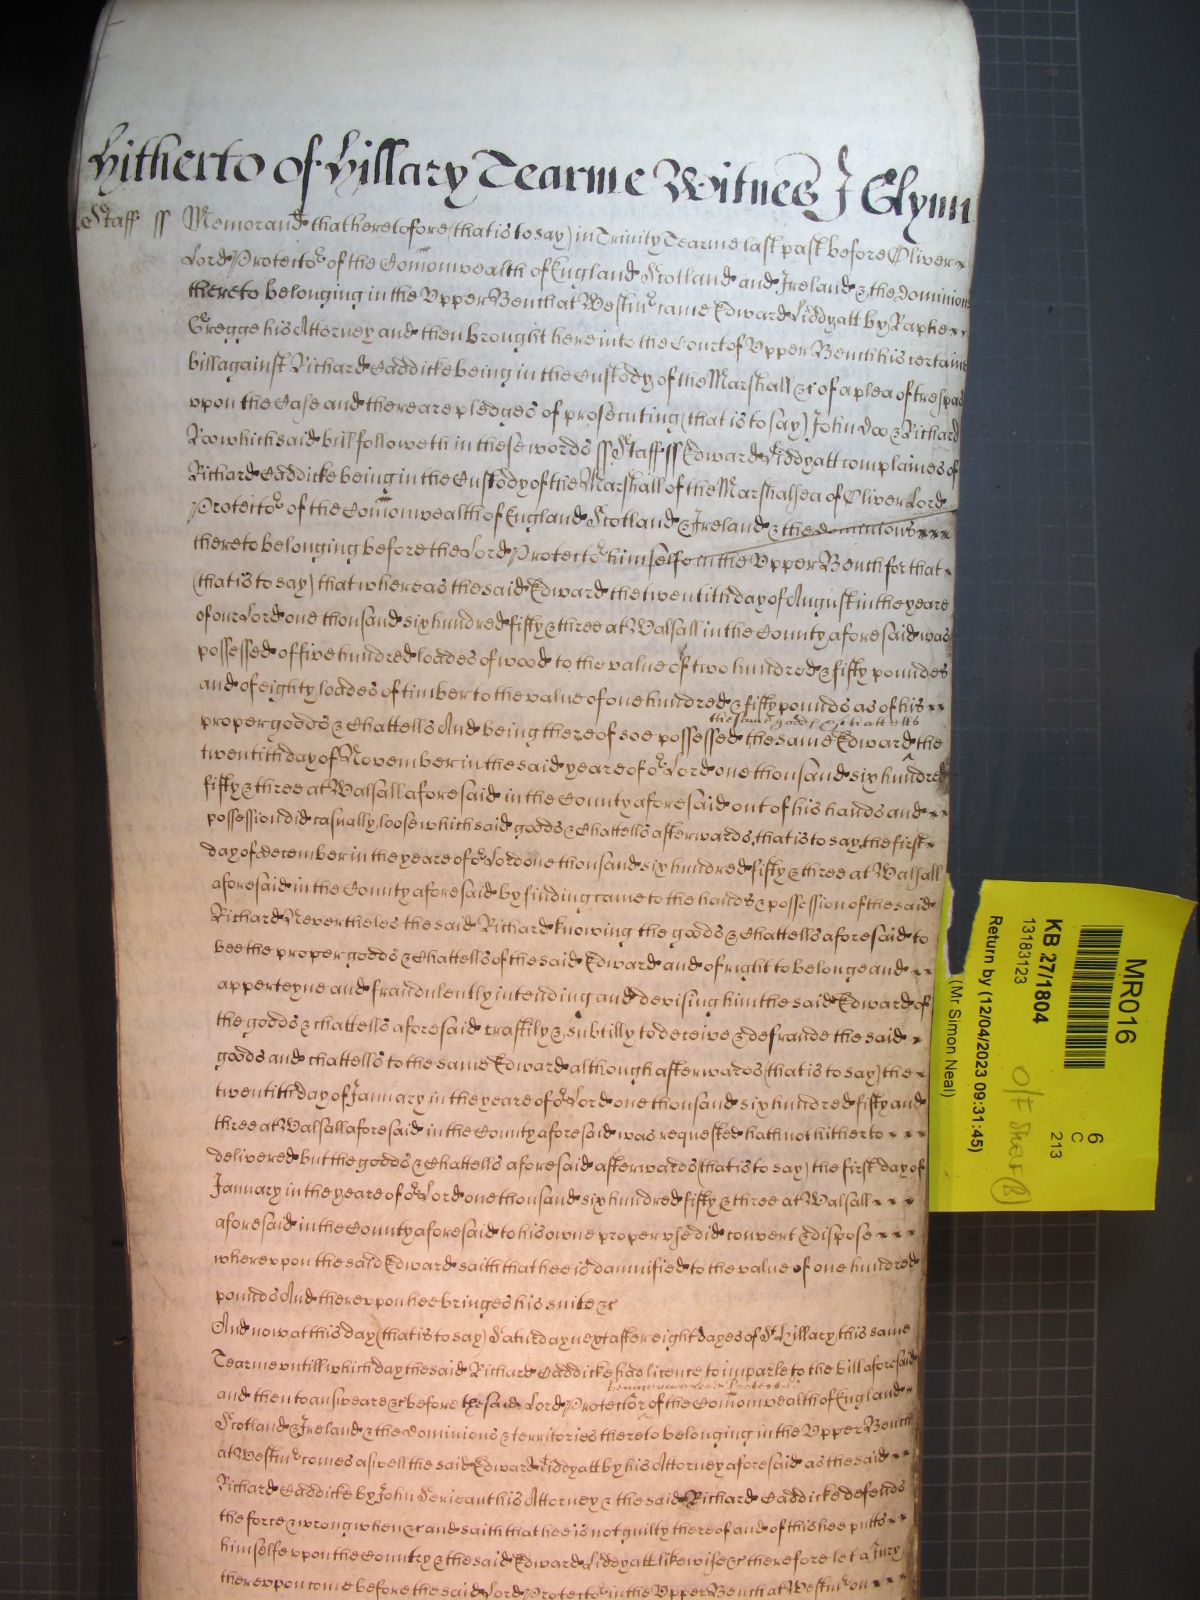 Hitherto of Hillary Tearme Witnes J Glynn
Staff ss Memorand that heretofore (that is to say) in Trinity Tearme last past before Oliver
Lord Protector of the Comonwealth of England Scotland and Ireland & the dominions
thereto belonging in the Vpper Bench at Westmr came Edward Liddyatt by Raphe
Gregge his Attorney and then brought here into the Court of Vpper Bench his certaine
bill against Richard Caddicke being in the Custody of the Marshall &c of a plea of trespas
vpon the Case and there are pledges of prosecuting (that is to say) John Doo & Richard
Roo which said bill followeth in these words ss Staff ss Edward Liddyatt complaines of
Richard Caddicke being in the Custody of the Marshall of the Marshalsea of Oliver Lord
Protector of the Comonwealth of England Scotland & Ireland & the dominions
thereto belonging before the Lord Protector himselfe in the Vpper Bench for that
(that is to say) that whereas the said Edward the twentith day of August in the yeare
of our Lord one thousand six hundred fifty & three at Walsall in the County aforesaid was
possessed of five hundred loades of wood to the value of two hundred & fifty poundes
and of eighty loades of timber to the value of one hundred & fifty pounds as of his
the same goods & chattells
proper goods & Chattells And being thereof soe possessed the same Edward the
twentith day of November in the said yeare of or Lord one thousand six hundred
fifty & three at Walsall aforesaid in the County aforesaid out of his hands and
possession did casually loose which said goods & Chattells afterwards, that is to say, the first
day of december in the yeare of or Lord one thousand six hundred fifty & three at Walsall
aforesaid in the County aforesaid by finding came to the hands & possession of the said
Richard Nevertheles the said Richard knowing the goods & Chattells aforesaid to
bee the proper goods & Chattells of the said Edward and of right to belonge and
apperteyne and fraudulently intending and devising him the said Edward of
the goods & chattells aforesaid craftily & subtilly to deceive & defraude the said
goods and chattells to the same Edward although afterwards (that is to say) the
twentith day of January in the yeare of or Lord one thousand six hundred fifty and
three at Walsall aforesaid in the County aforesaid was requested hath not hitherto
delivered but the goods & Chattells aforesaid afterwards (that is to say) the first day of
January in the yeare of or Lord one thousand six hundred fifty & three at Walsall
aforesaid in the County aforesaid to his owne proper vse did convert & dispose
wherevpon the said Edward saith that hee is damnified to the value of one hundred
pounds And therevpon hee bringes his suite &c
And now at this day (that is to say) Saturday next after eight dayes of St Hillary this same
Tearme vntill which day the said Richard Caddicke had licence to imparle to the bill aforesaid
and then to answeare &c before the said Lord Protector of the Comonwealth of England
Scotland & Ireland & the dominions & territories thereto belonging in the Vpper Bench
at Westmr comes aswell the said Edward Liddyatt by his Attorney aforesaid as the said
Richard Caddicke by John Serieant his Attorney & the said Richard Caddicke defends
the force & wrong when &c and saith that hee is not guilty thereof and of this hee putts
himselfe vpon the Country & the said Edward Liddyatt likewise &c therefore let a Jury
therevpon come before the said Lord Protector in the Vpper Bench at Westmr on
MR016
KB 27/1804
13183123
Return by (12/04/2023 09:31:45)
(Mr Simon Neal)
6
C
213